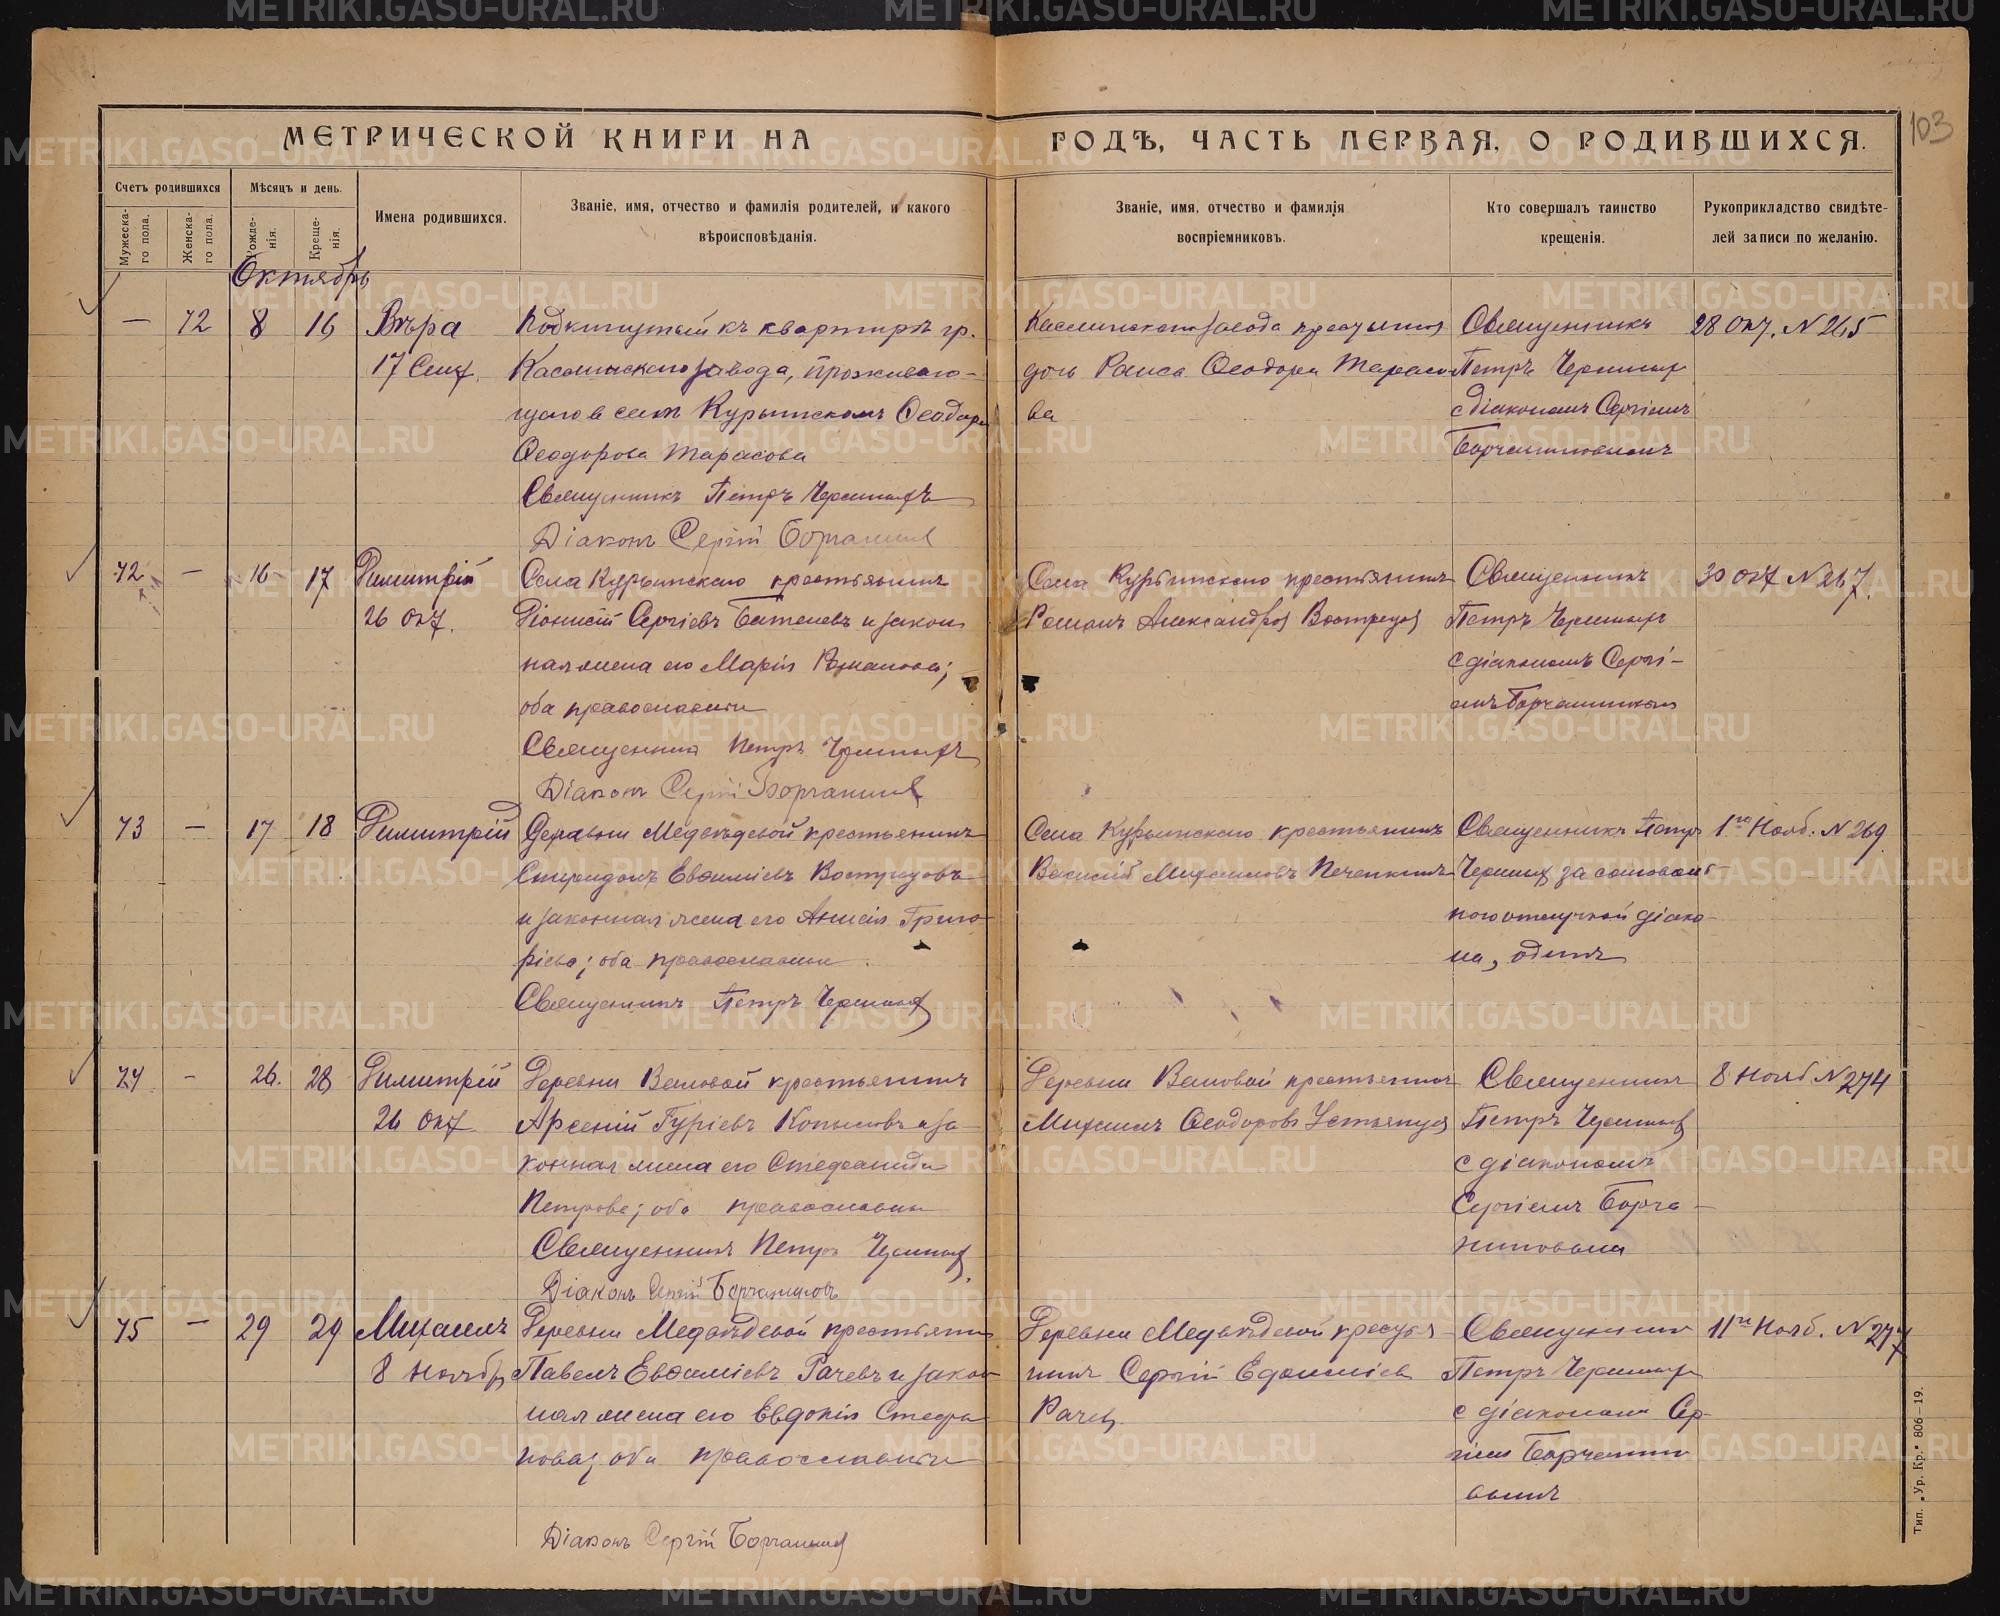 МЕТРИЧЕСКОЙ КНИГИ НА ГОДЪ, ЧАСТЬ ПЕРВАЯ, О РОДИВШИХСЯ.
103
Счетъ родившихся
Мужеска-
го пола.
Женска-
го пола.
Мѣсяцъ и день.
Рожде-
нія.
Креще-
нія.
Имена родившихся.
Званіе, имя, отчество и фамилія родителей, и какого
вѣроисповѣданія.
Званіе, имя, отчество и фамилія
воспріемниковъ.
Кто совершалъ таинство
крещенія.
Рукоприкладство свидѣте-
лей записи по желанію.
Октябрь
— 72 8 16 Вѣра
17 Сент.
Подкинутый къ квартирѣ гр.
Каслинскаго завода, проживаю-
щаго в селѣ Курьинскомъ Ѳеодора
Ѳеодорова Тарасова
Священникъ Петръ Черныхъ
Діаконъ Сергій
Каслинскаго завода
дочь Раиса Ѳеодора Тарасо
ва
Священникъ
Петръ Черныхъ
с діакономъ Сергіемъ
28 Окт. N 265
72 — 16 17 Димитрій
26 Окт.
Села Курьинскаго крестьянинъ
Діонисій Сергіевъ и закон
ная жена его Марія Романова;
оба православные
Священникъ Петръ Черныхъ
Діаконъ Сергій
Села Курьинскаго крестьянинъ
Романъ Александровъ Вострецовъ
Священникъ
Петръ Черныхъ
с діакономъ Сергі-
емъ
30 окт N 267.
73 — 17 18 Димитрій
Деревни Медвѣдевой крестьянинъ
Спиридонъ Евѳиміевъ Вострецовъ
и законная жена его Анисія Григо
рієва; оба православные
Священникъ Петръ Черныхъ
Села Курьинскаго крестьянинъ
Василій Михаиловъ Печенкинъ
Священникъ Петръ
Черныхъ за самоволь-
ною отлучкой діако-
на, одинъ
1го Нояб. N 269
74 — 26. 28 Димитрій
26 Окт
Деревни крестьянинъ
Арсеній Гуріевъ Копыловъ и за
конная жена его Стефанида
Петрова; оба православные
Священникъ Петръ Черныхъ
Діаконъ Сергій
Деревни крестьянинъ
Михаилъ Ѳеодоровъ Устьянцевъ
Священникъ
Петръ Черныхъ
с діакономъ
Сергіемъ
8 Нояб N 274
75 — 29 29 Михаилъ
8 Ноябр
Деревни Медвѣдевой крестьянинъ
Павелъ Евѳиміевъ Рачевъ и закон
ная жена его Евдокія Стефа
нова; оба православные
Діаконъ Сергій
Деревни Медвѣдевой крестья
нинъ Сергій
Рачевъ
Священникъ
Петръ Черныхъ
с діакономъ Сер-
гіемъ
11го Нояб. N 277
Тип. „Ур. Кр.“ 806—19.
METRIKI.GASO-URAL.RU